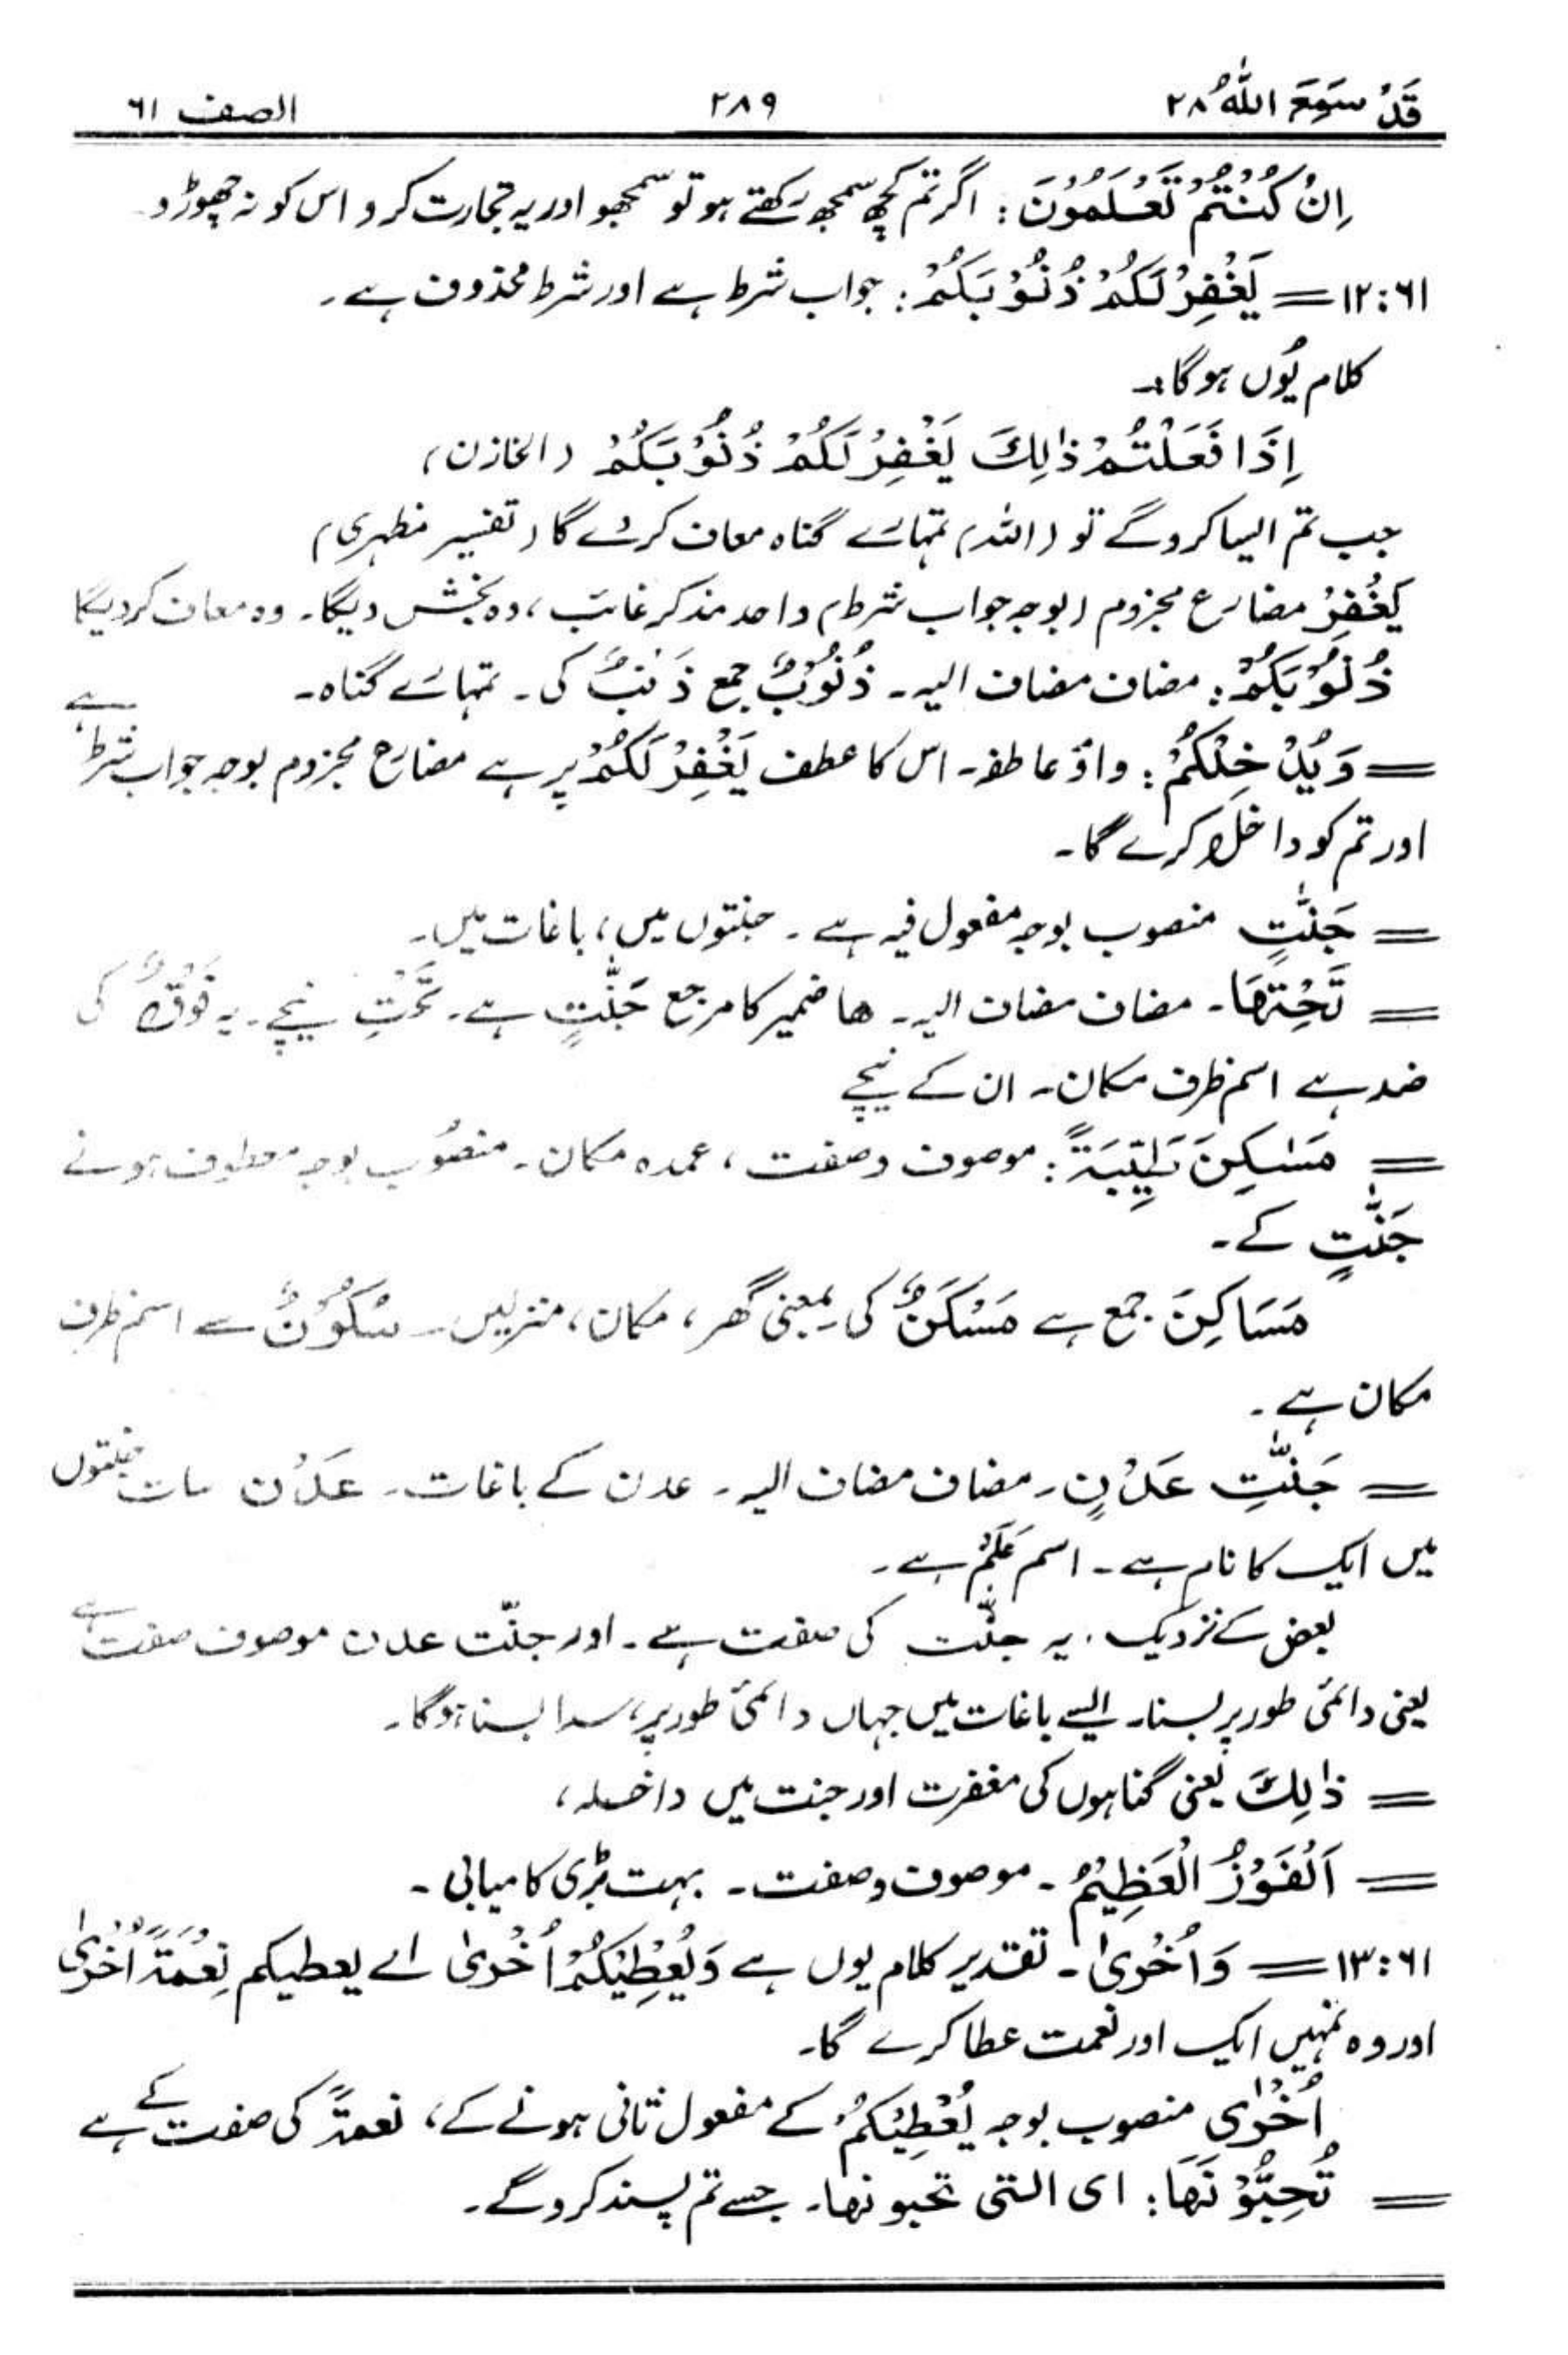 قَدْ سَمِعَ اللّٰهُ ۲۸ ۲۸۹ الصف ۶۱
اِنْ كُنْتُمْ تَعْلَمُوْنَ: اگر تم کچھ سمجھ رکھتے ہو تو سمجھو اور یہ تجارت کرو اس کو نہ چھوڑو۔
۶۱:۱۲ = يَغْفِرْ لَكُمْ ذُنُوْبَكُمْ: جواب شرط ہے اور شرط محذوف ہے۔
کلام یُوں ہوگا:۔
اِذَا فَعَلْتُمْ ذٰلِكَ يَغْفِرْ لَكُمْ ذُنُوْبَكُمْ (الخازن)
جب تم ایسا کروگے تو (اللہ) تمہارے گناہ معاف کرے گا (تفسیر مظہری)
يَغْفِرْ مضارع مجزوم (بوجہ جواب شرط) واحد مذکر غائب، وہ بخش دیگا۔ وہ معاف کردیگا
ذُنُوْبَكُمْ: مضاف مضاف الیہ۔ ذُنُوْبٌ جمع ذَنْبٌ کی۔ تمہارے گناہ۔
= وَيُدْخِلْكُمْ: واؤ عاطفہ۔ اس کا عطف يَغْفِرْ لَكُمْ پر ہے مضارع مجزوم بوجہ جواب شرط ہے
اور تم کو داخل کرے گا۔
= جَنّٰتٍ منصوب بوجہ مفعول فیہ ہے۔ جنتوں میں، باغات میں۔
= تَحْتِهَا۔ مضاف مضاف الیہ۔ ھا ضمیر کا مرجع جَنّٰتٍ ہے۔ تَحْتِ نیچے۔ یہ فَوْقٌ کی
ضد ہے اسم ظرف مکان۔ ان کے نیچے
= مَسٰكِنَ طَيِّبَةً: موصوف وصفت، عمدہ مکان۔ منصُوب بوجہ معطوف ہونے
جَنّٰتٍ کے۔
مَسَاكِنَ جمع ہے مَسْكَنٌ کی بمعنی گھر، مکان، منزلیں۔ سُكُوْنٌ سے اسم ظرف
مکان ہے۔
= جَنّٰتِ عَدْنٍ۔ مضاف مضاف الیہ۔ عدن کے باغات۔ عَدْن سات جنتوں
میں ایک کا نام ہے۔ اسم عَلَمْ ہے۔
بعض کے نزدیک، یہ جنّت کی صفت ہے۔ اور جنّت عدن موصوف صفت ہے
یعنی دائمی طور پر بسنا۔ ایسے باغات میں جہاں دائمی طور پر، سدا بسنا ہوگا۔
= ذٰلِكَ یعنی گناہوں کی مغفرت اور جنت میں داخلہ،
= اَلْفَوْزُ الْعَظِيْمُ۔ موصوف وصفت۔ بہت بڑی کامیابی۔
۶۱:۱۳ = وَاُخْرٰى۔ تقدیر کلام یوں ہے وَيُعْطِيْكُمْ اُخْرٰى اے يعطيكم نِعْمَةً اُخْرٰى
اور وہ تمہیں ایک اور نعمت عطا کرے گا۔
اُخْرٰى منصوب بوجہ يُعْطِيْكُمْ کے مفعول ثانی ہونے کے، نعمةً کی صفت کے ہے
= تُحِبُّوْنَهَا: ای التی تحبونھا۔ جسے تم پسند کروگے۔